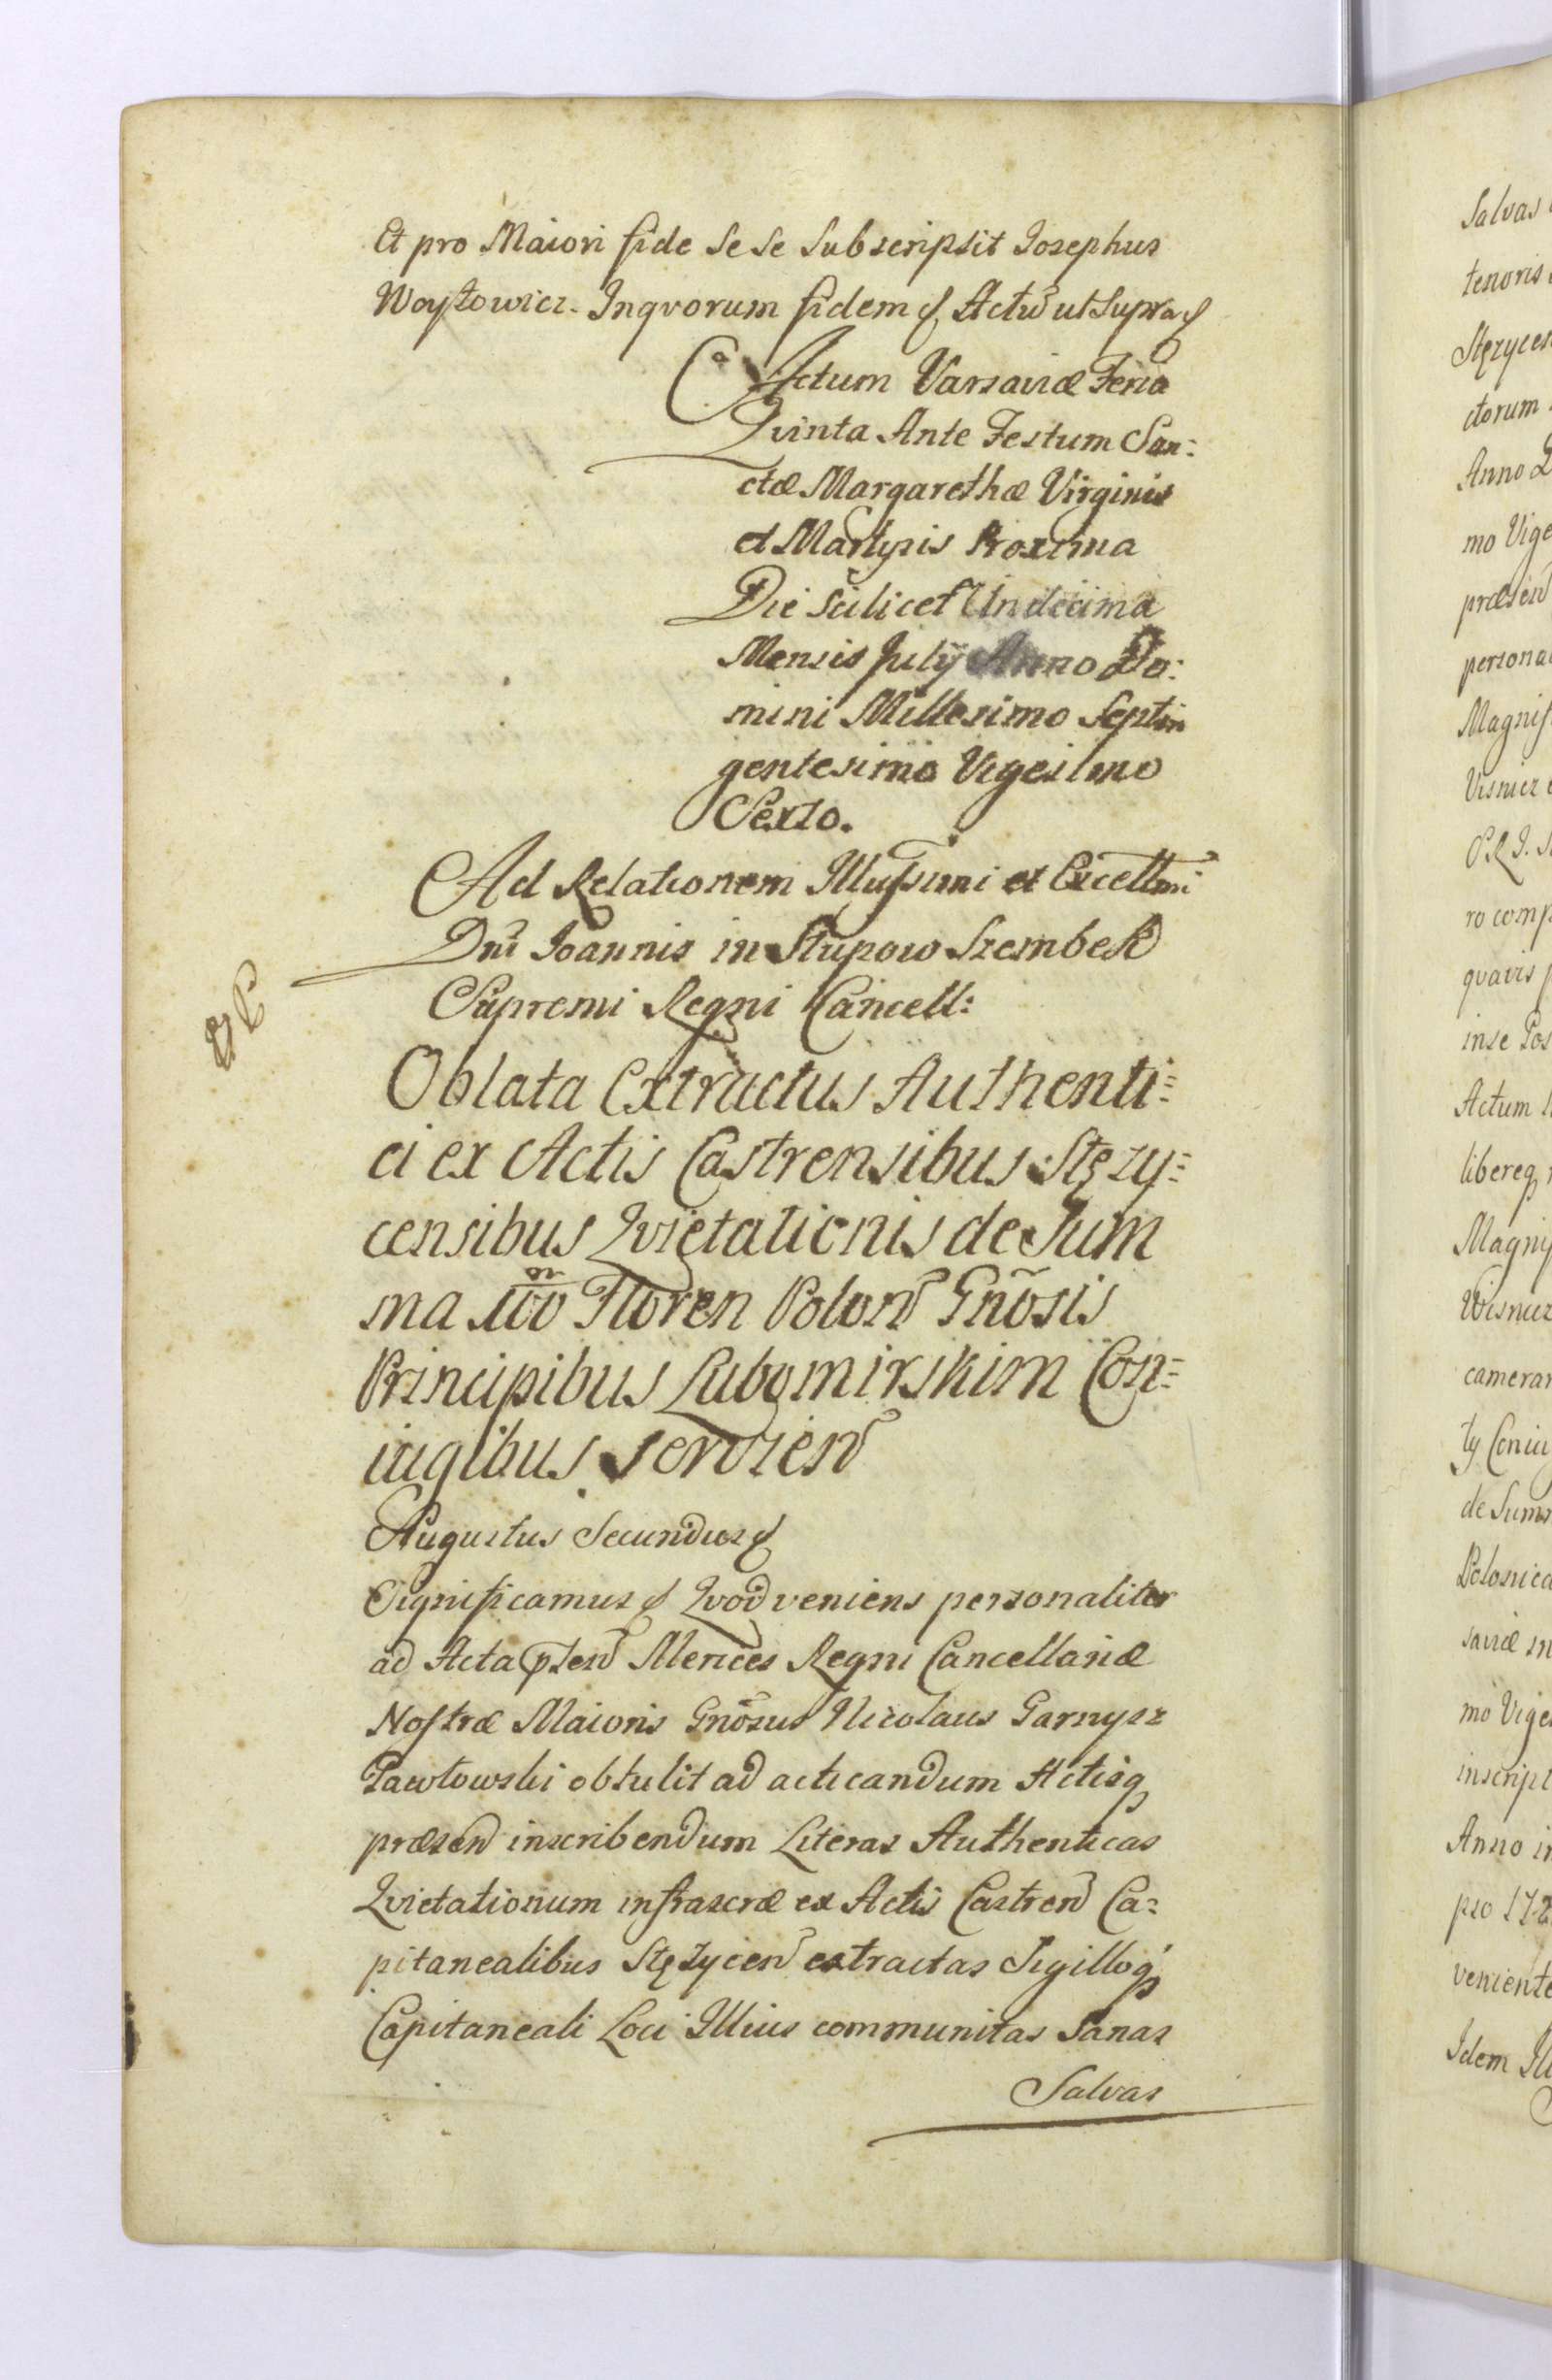 Et pro Maiori fide Se Se Subscripsit Josephus
Woytowicz. Inqvorum fidem & Actũ ut Supra &
Actum Varsaviæ Feria
Qvinta Ante Festum San=
ctæ Margarethæ Virginis
et Martyris Proxima
Die Scilicet Undecima
Mensis Julÿ Anno Do:
mini Millesimo Septin
gentesimo Vigesimo
Sexto.
Ad Relationem Illussimi et Excellmi
Dni Joannis in Słupow Szembek
Supremi Regni Cancell:
Oblata Extractus Authenti=
ci ex Actis Castrensibus Stęzy=
censibus Qvietationis de Sum
ma Floren Polon Gnõsis
Principibus Lubomirskim Con=
iugibus Servien
Augustus Secundus &
Significamus & Qvod veniens personaliter
ad Acta pten Metrices Regni Cancellariæ
Nostræ Maioris Gnõsus Nicolaus Garnysz
Pawłowski obtulit ad acticandum Actisq
præsen inscribendum Literas Authenticas
Qvietationum infrascræ ex Actis Castren Ca=
pitanealibus Stęzycen extractas Sigilloq
Capitaneali Loci Illius communitas Sanas
Salvas
Salvas
tenoris
Stęzycen
ctorum
Anno D
mo Vige
præsen
persona
Magnif
Visnicz
S. R. J.
ro comp
qvavis
inse Pos
Actum
libereq
Magnif
Wisnicz
camerar
ty Coniu
de Sum
Polonica
saviæ in
mo Vige
inscript
Anno in
pso 172
veniente
Idem Ill